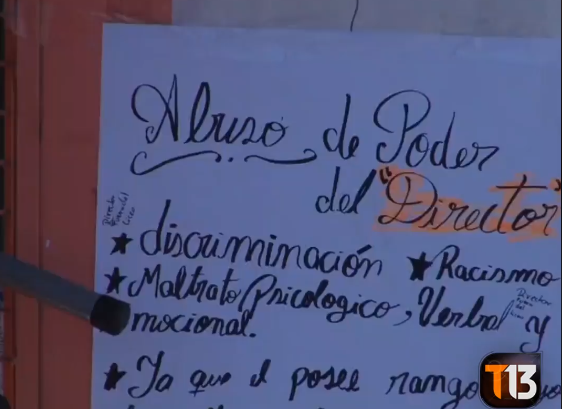 Abuso de Poder
del "Director"
★ discriminación ★ Racismo
★ Maltrato Psicologico, Verbal y
mocional.
★ Ya que el posee rango
T13